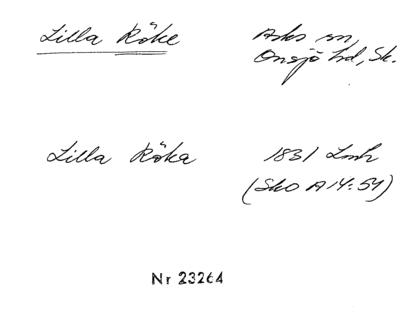 Lilla Röke Asks sn,
Onsjö hd, Sk.
Lilla Röka 1831 Lmh
(Sko A 14:54)
Nr 23264